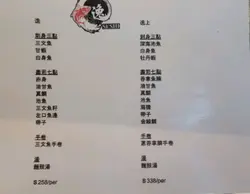 逸
SUSHI
逸
刺身三點
三文魚
甘蝦
白身魚
壽司七點
赤身
油甘魚
真鯛
池魚
三文魚籽
左口魚邊
帶子
手卷
三文魚手卷
湯
麵豉湯
$ 258/per
逸上
刺身三點
深海池魚
白身魚
牡丹蝦
壽司七點
吞拿魚腩
油甘魚
真鯛
池魚
海膽
帶子
金鎚鯛
手卷
蔥吞拿蓉手卷
湯
麵豉湯
$ 338/per